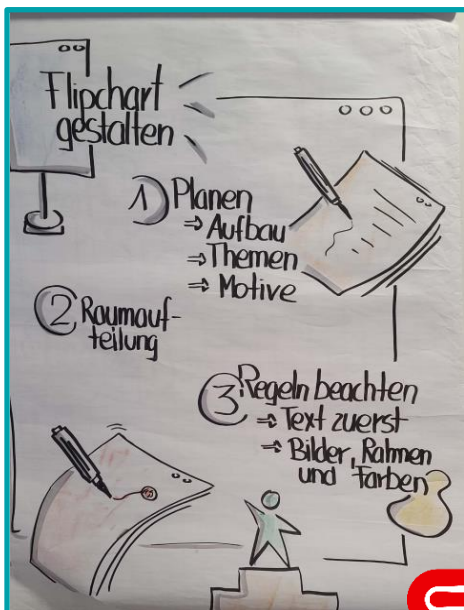 Flipchart
gestalten
1) Planen
⇒ Aufbau
⇒ Themen
⇒ Motive
2 Raumauf-
teilung
3 Regeln beachten
⇒ Text zuerst
⇒ Bilder, Rahmen
und Farben